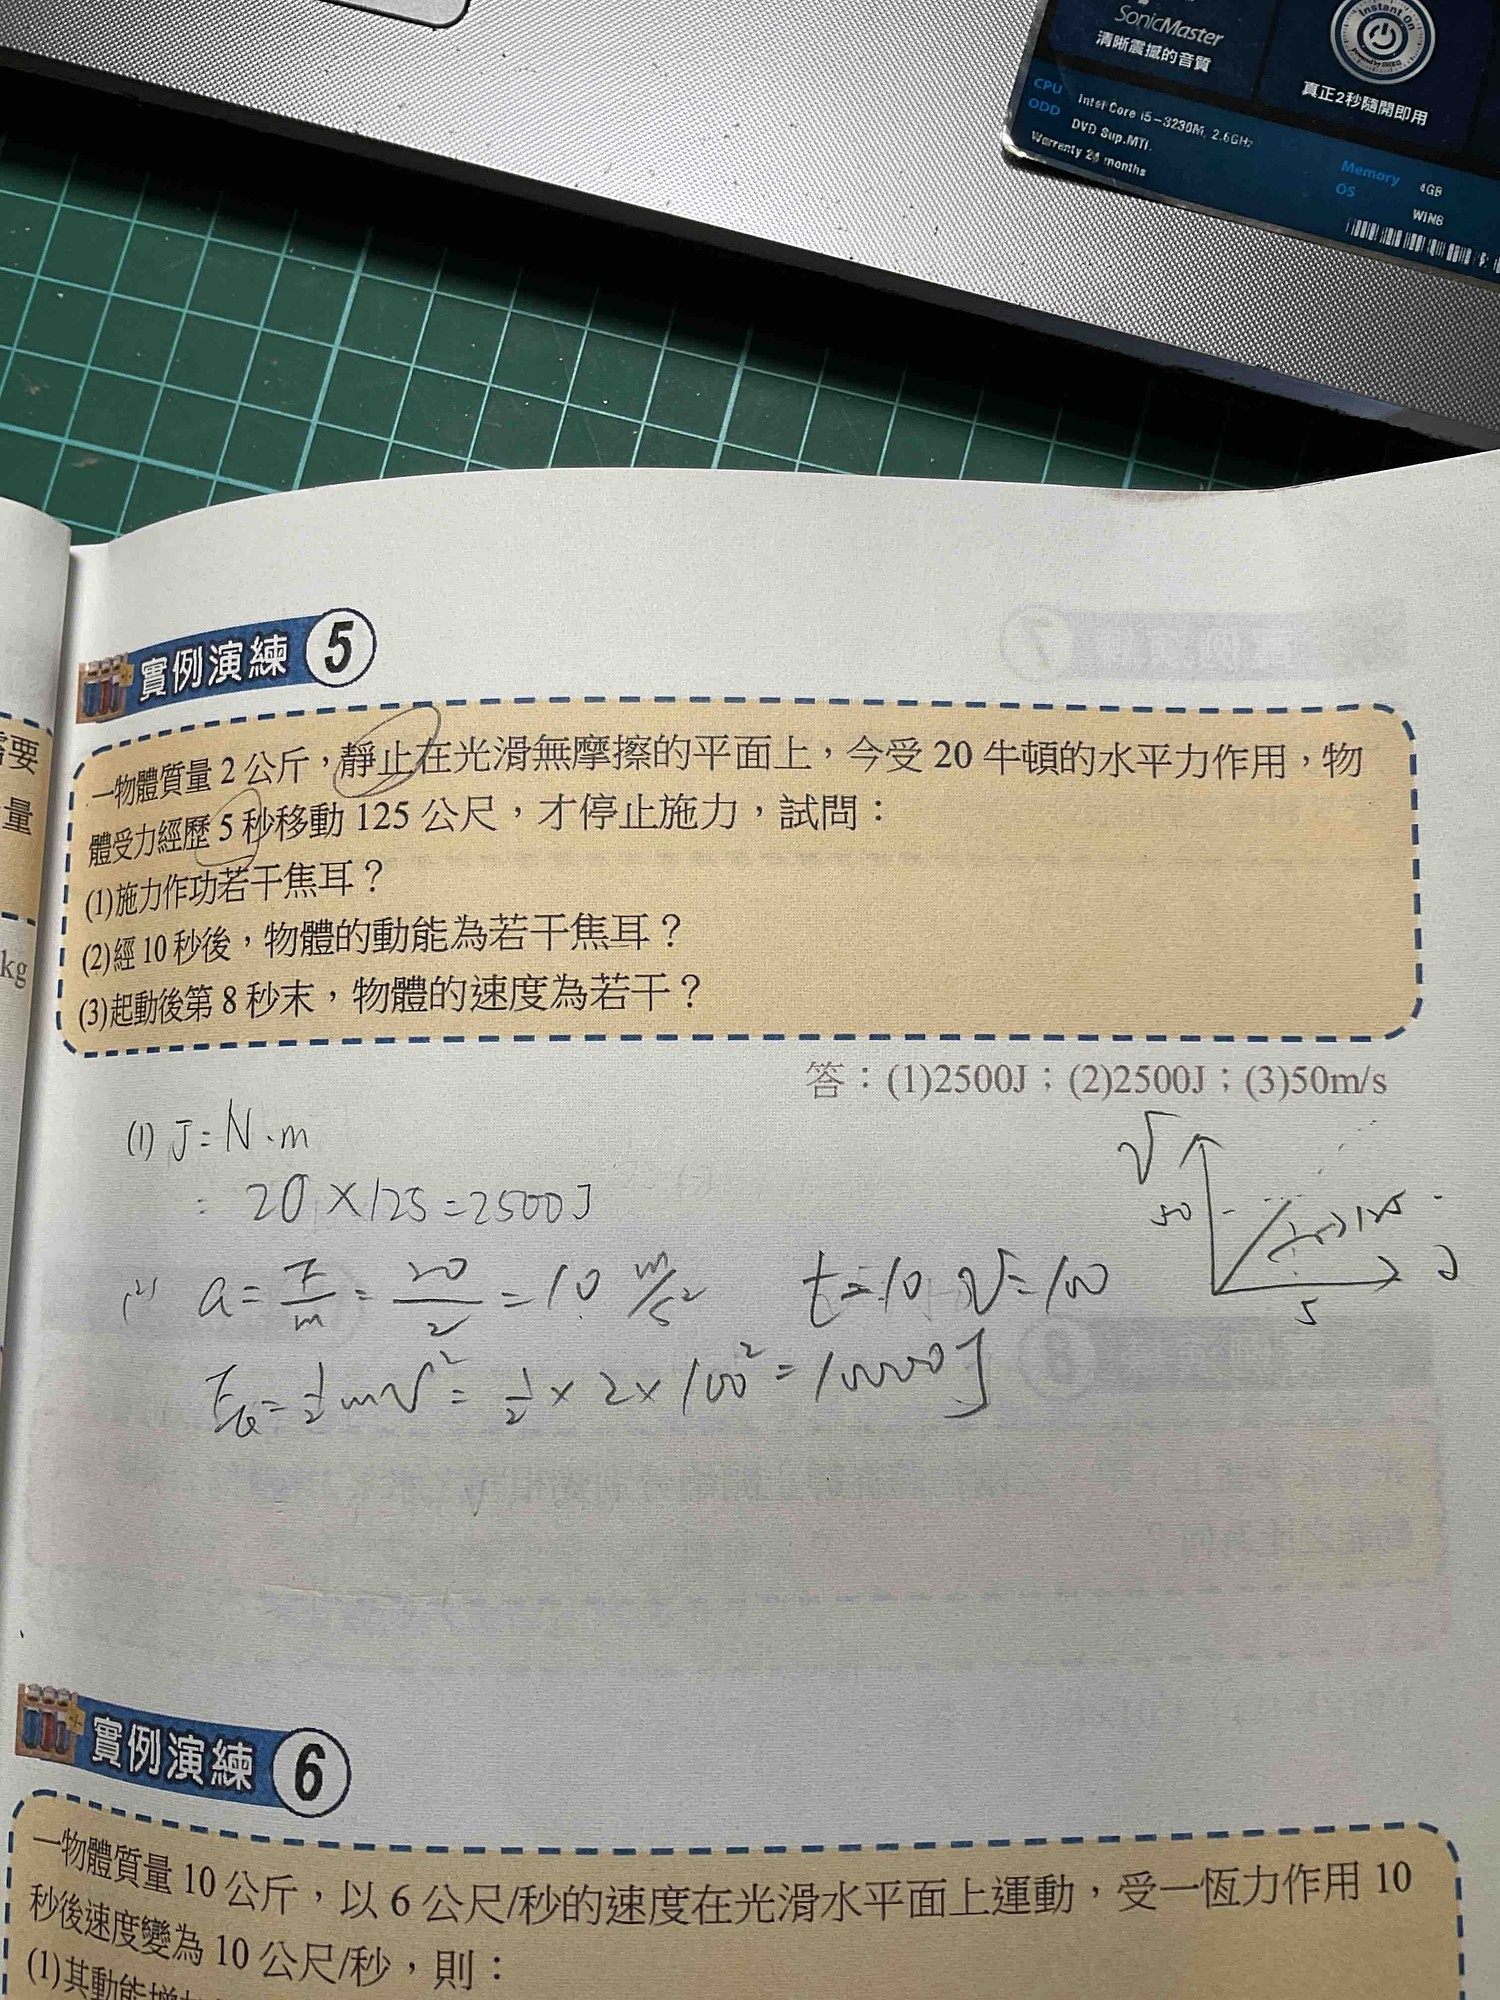 SonicMaster
清晰震撼的音質
Instant On
真正2秒隨開即用
CPU Intel Core i5-3230M, 2.6GHz
ODD DVD Sup.MTI.
Warranty 24 months
Memory 4GB
OS WIN8
需要
量
kg
實例演練 5
一物體質量 2 公斤，靜止在光滑無摩擦的平面上，今受 20 牛頓的水平力作用，物
體受力經歷 5 秒移動 125 公尺，才停止施力，試問：
(1)施力作功若干焦耳？
(2)經 10 秒後，物體的動能為若干焦耳？
(3)起動後第 8 秒末，物體的速度為若干？
答：(1)2500J；(2)2500J；(3)50m/s
(1) J = N·m
= 20 × 125 = 2500J
(2) a = F/m = 20/2 = 10 m/s² t = 10 V = 100
Ek = 1/2 mV² = 1/2 × 2 × 100² = 10000J
V
50
125
5
實例演練 6
一物體質量 10 公斤，以 6 公尺/秒的速度在光滑水平面上運動，受一恆力作用 10
秒後速度變為 10 公尺/秒，則：
(1)其動能增